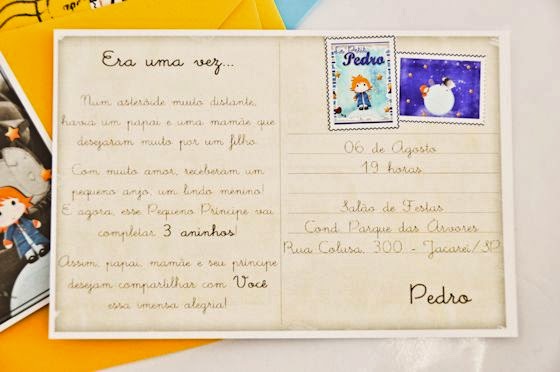 Era uma vez...
Num asteróide muito distante,
havia um papai e uma mamãe que
desejaram muito por um filho.
Com muito amor, receberam um
pequeno anjo, um lindo menino!
E agora, esse Pequeno Príncipe vai
completar 3 aninhos!
Assim, papai, mamãe e seu príncipe
desejam compartilhar com Você
essa imensa alegria!
Le Petit
Pedro
06 de Agosto
19 horas
Salão de Festas
Cond. Parque das Árvores
Rua Colusa, 300 - Jacareí/SP
Pedro